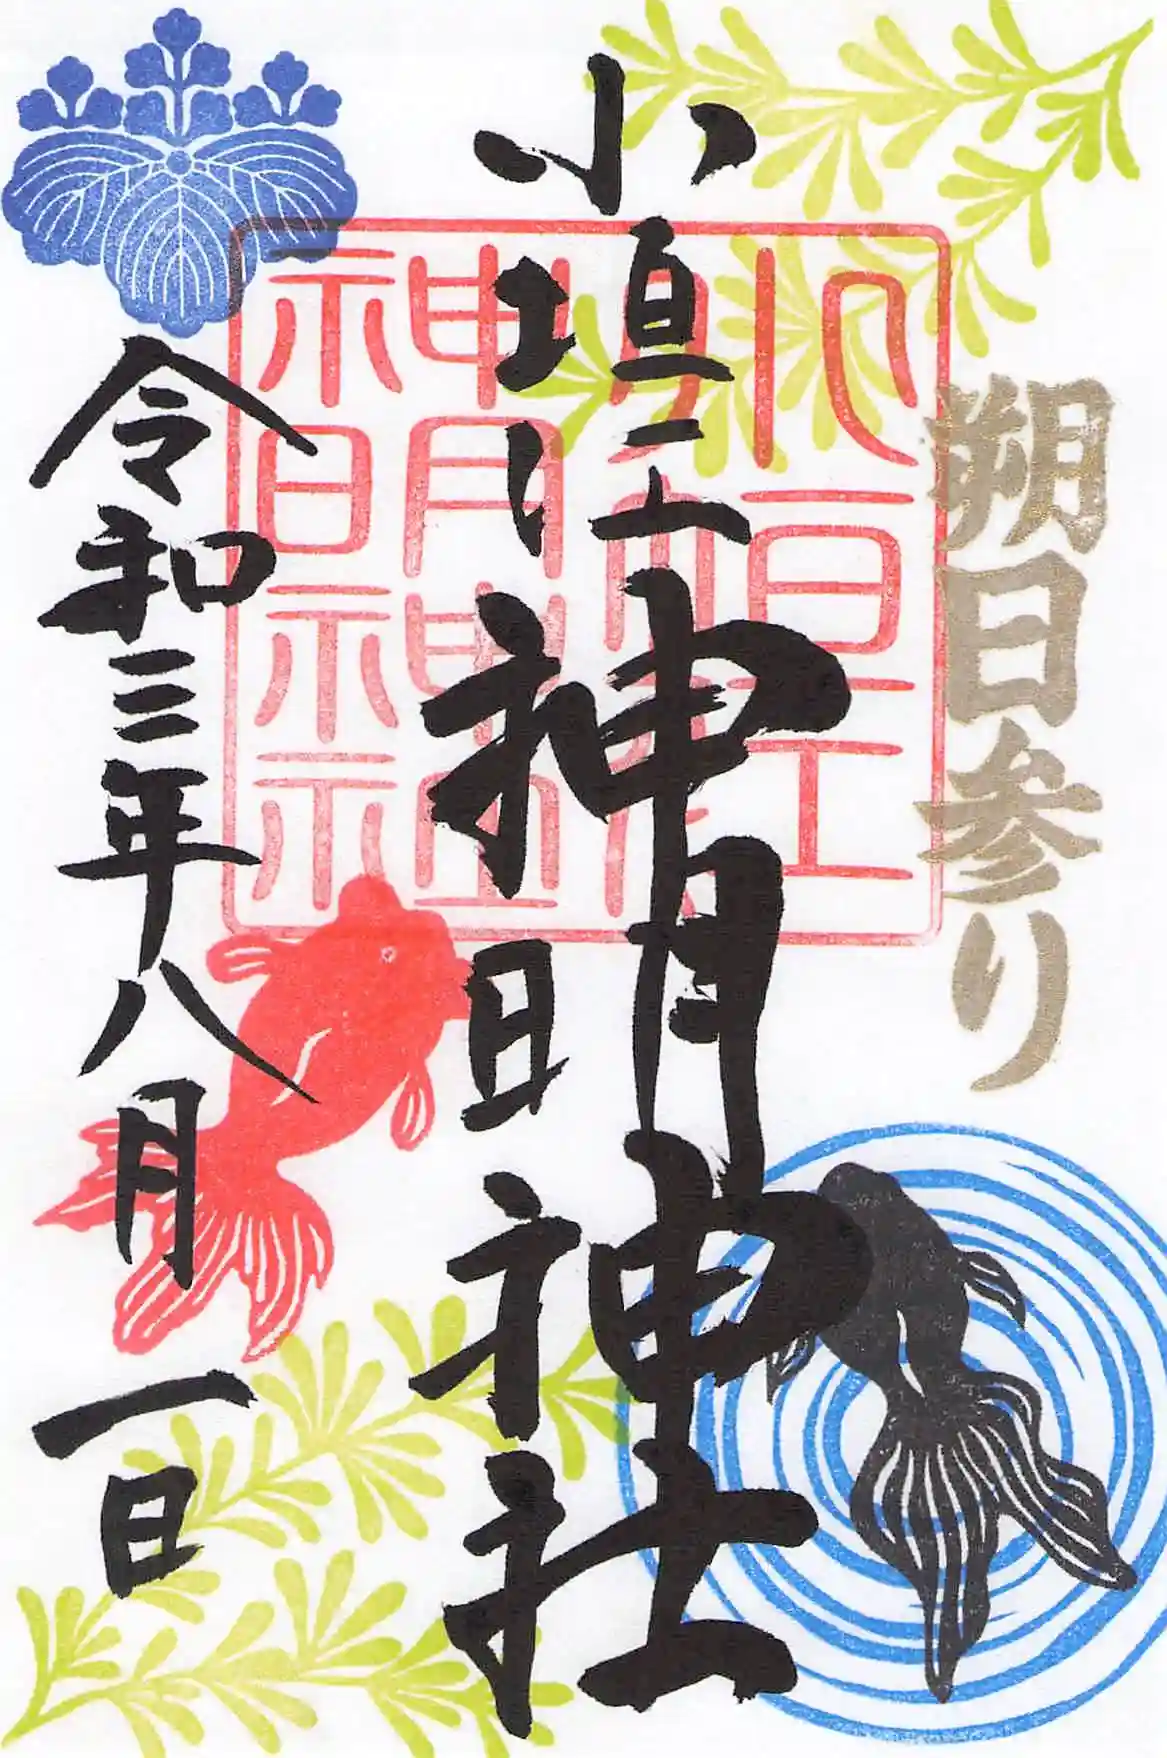 朔日参り
小垣江神明神社
小垣江
神明神社
令和三年八月一日